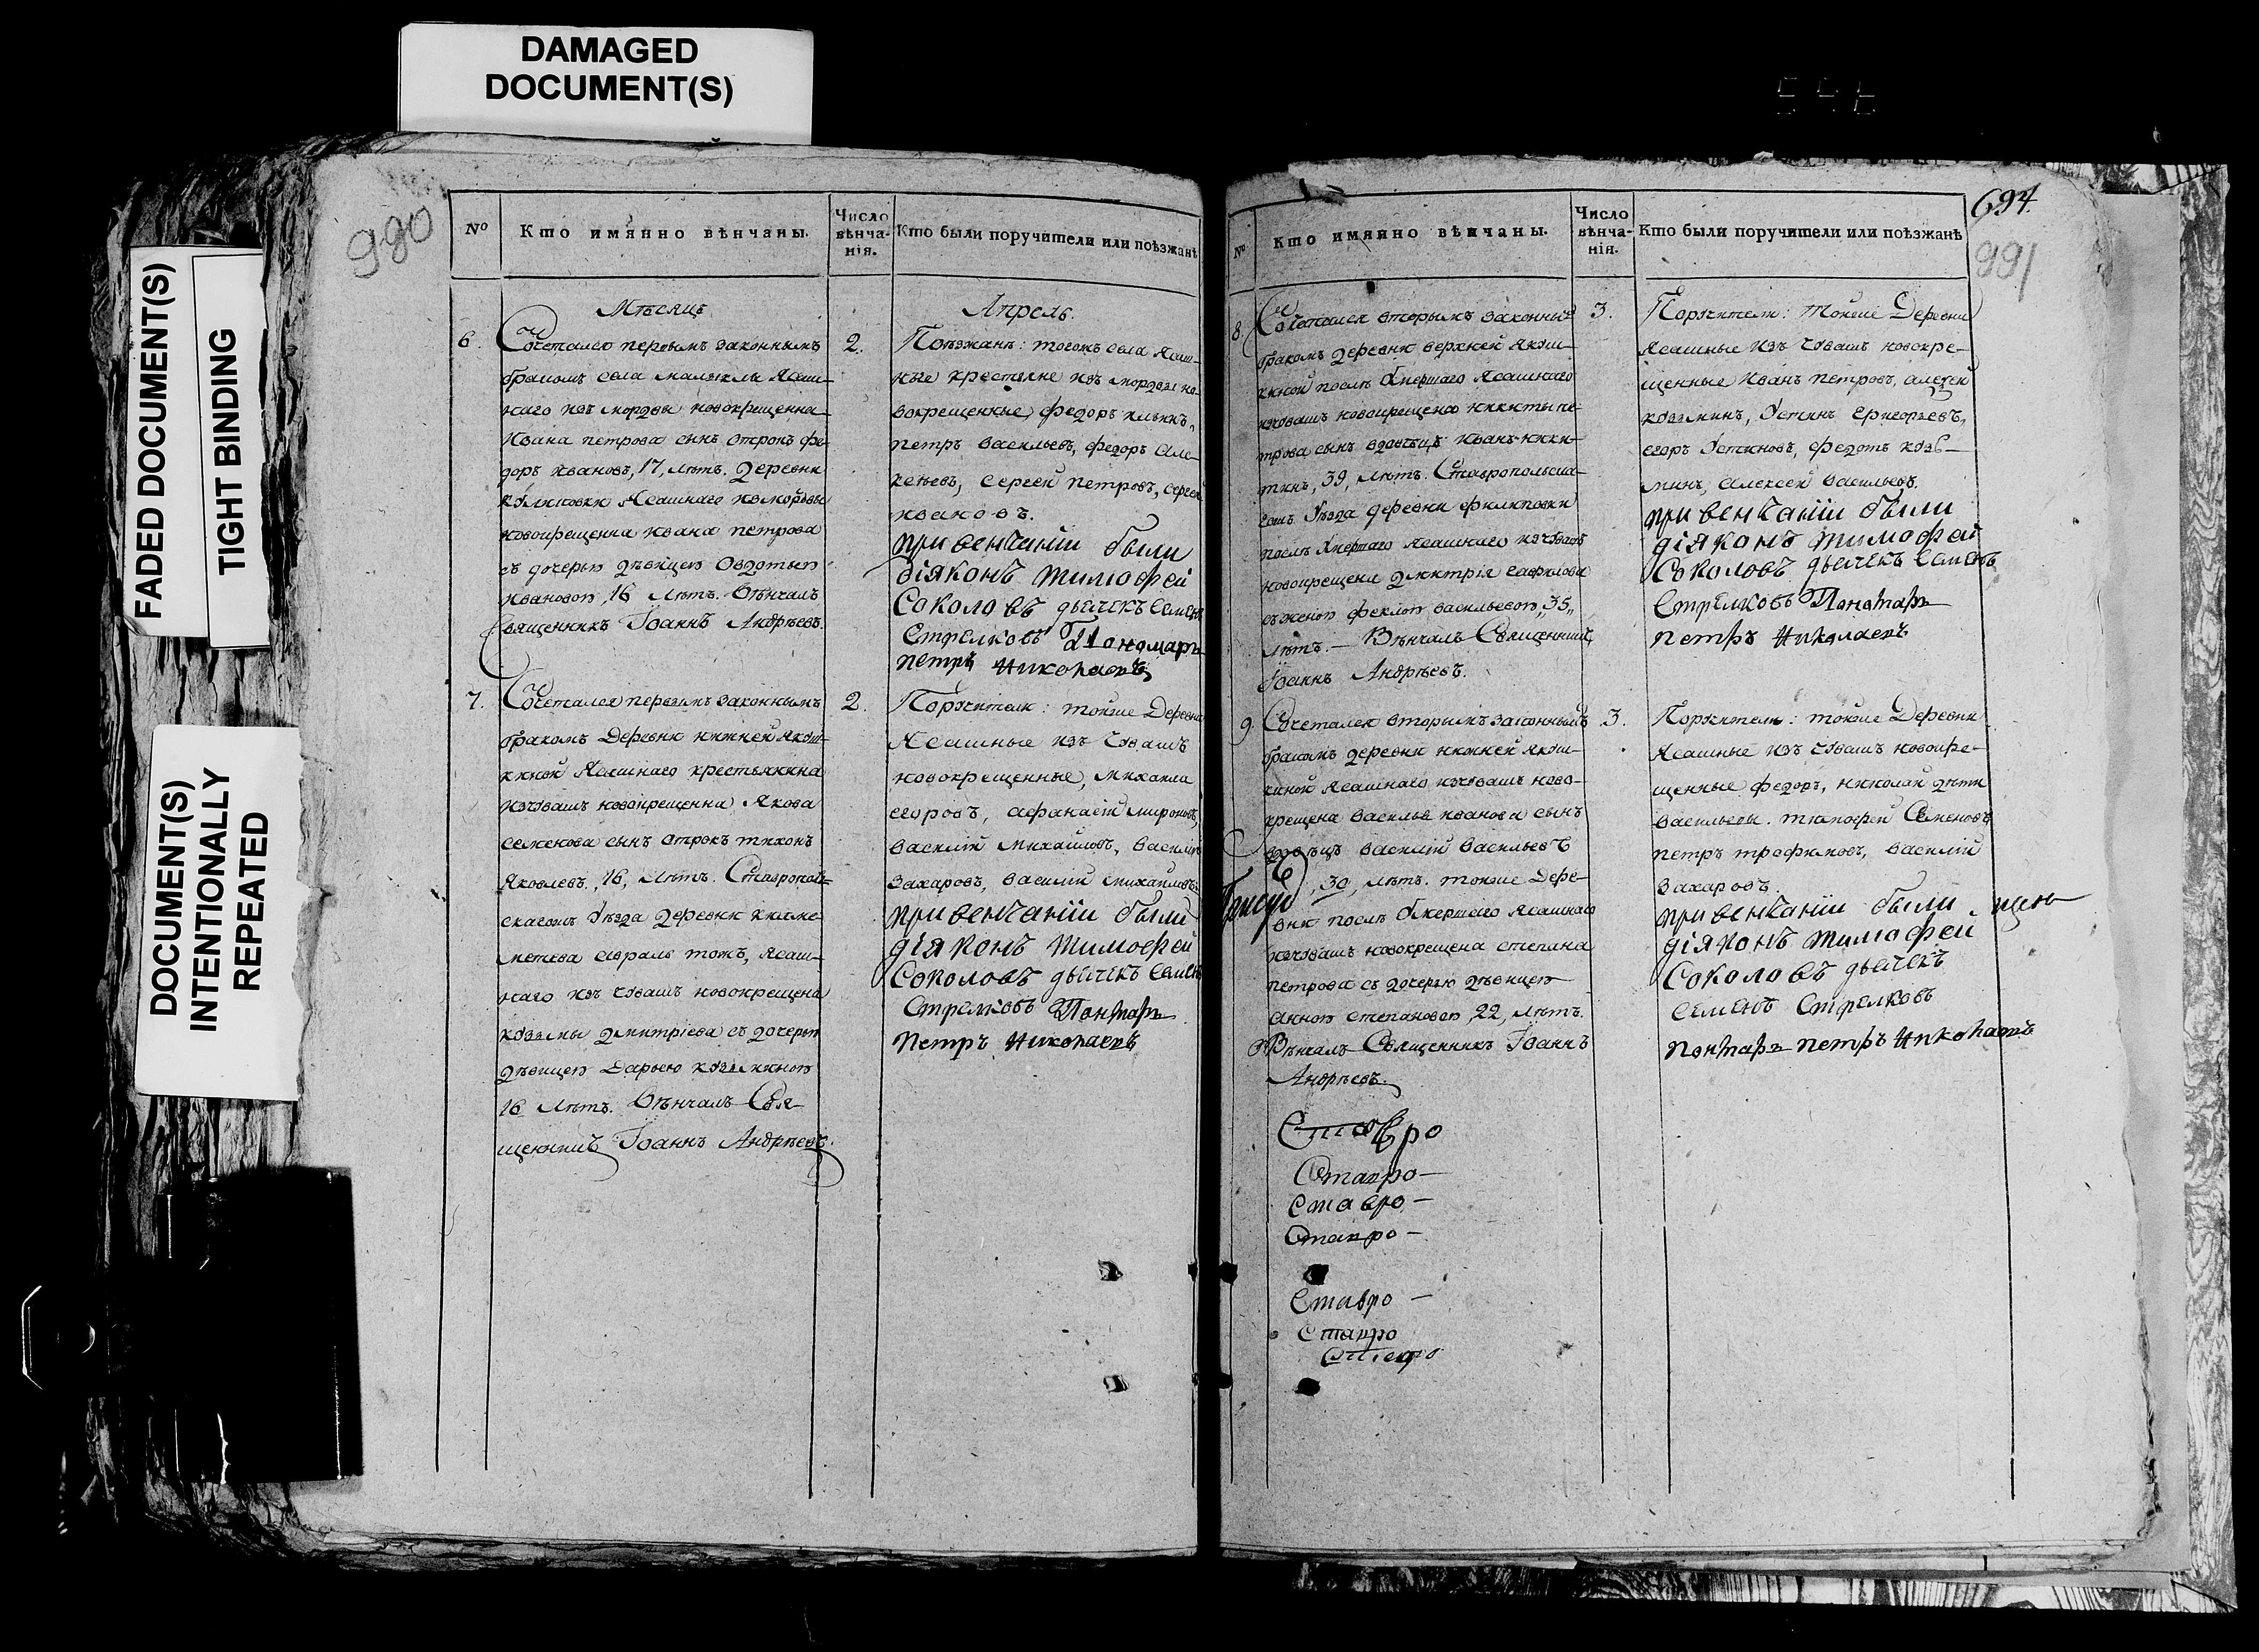 DAMAGED
DOCUMENT(S)
FADED DOCUMENT(S)
TIGHT BINDING
DOCUMENT(S)
INTENTIONALLY
REPEATED
990
№
Кто имянно вѣнчаны.
Число
вѣнча-
нія.
Кто были поручители или поѣзжанѣ
Мѣсяцъ
Апрель.
6.
Сочетался первымъ законнымъ
бракомъ села малыклы Ясаш-
наго изъ мордвы новокрещенна
Ивана петрова сынъ отрокъ фе-
доръ Ивановъ, 17, лѣтъ. Деревни
Ясашнаго измордвы
новокрещенна Ивана петрова
съ дочерью дѣвицею Овдотьею
Ивановою, 16 лѣтъ. Вѣнчалъ
священникъ Іоаннъ Андрѣевъ.
2.
Поѣзжанѣ: тогожъ села Ясаш-
ные крестьяне изъ мордвы но-
вокрещенные федоръ ильинъ,
петръ васильевъ, федоръ Але-
ксѣевъ, сергей петровъ, сергей
ивановъ.
при венчаніи были
діяконъ тимофей
Соколовъ дьячекъ Семенъ
Стрелковъ Пономарь
петръ Николаевъ
7.
Сочетался первымъ законнымъ
бракомъ Деревни нижней Якуш-
киной Ясашнаго крестьянина
изчувашъ новокрещенна Якова
семенова сынъ отрокъ тихонъ
Яковлевъ, 16, лѣтъ. Ставрополь-
скагожъ Уѣзда деревни
тожъ, Ясаш-
наго изъ чувашъ новокрещена
козьмы дмитріева съ дочерью
дѣвицею Дарьею козминою
16 лѣтъ. Вѣнчалъ Свя-
щенникъ Іоаннъ Андрѣевъ.
2.
Поручители: тойже Деревни
Ясашные изъ Чувашъ
новокрещенные, михаила
егоровъ, афанасій мироновъ,
василій михайловъ, василій
захаровъ, василій михайловъ.
при венчаніи были
діяконъ тимофей
Соколовъ дьячекъ Семенъ
Стрелковъ Понмарь
петръ Николаевъ
694.
991
№
Кто имянно вѣнчаны.
Число
вѣнча-
нія.
Кто были поручители или поѣзжанѣ
8.
Сочетался вторымъ законнымъ
бракомъ деревни верхней Якуш-
киной послѣ Умершаго Ясашнаго
изчувашъ новокрещена никиты пе-
трова сынъ вдовецъ иванъ ники-
тинъ, 39, лѣтъ. Ставропольска-
гожъ Уѣзда деревни филиповки
послѣ Умершаго Ясашнаго изчувашъ
новокрещена дмитрія гаврилова
съ женою феклою васильевою, 35,
лѣтъ. — Вѣнчалъ Священникъ
Іоаннъ Андрѣевъ.
3.
Поручители: тойже Деревни
Ясашные изъ Чувашъ новокре-
щенные иванъ петровъ, алексей
козминъ, Устинъ григорьевъ,
егоръ Устиновъ, федотъ козь-
минъ, Алексей васильевъ.
при венчаніи были
діяконъ тимофей
Соколовъ дьячекъ Семенъ
Стрелковъ Понамарь
петръ Николаевъ
9.
Сочетался вторымъ законнымъ
бракомъ деревни нижней Якуш-
киной Ясашнаго изчувашъ ново-
крещена василья иванова сынъ
вдовецъ василій васильевъ
, 30, лѣтъ. тойже Дере-
вни послѣ Умершаго Ясашнаго
изчувашъ новокрещена степана
петрова съ дочерью дѣвицею
анною степановою, 22, лѣтъ.
Вѣнчалъ Священникъ Іоаннъ
Андрѣевъ.
3.
Поручители: тойже Деревни
Ясашные изъ Чувашъ новокре-
щенные федоръ, николай дѣти
васильевы. тимофей Семеновъ
петръ трофимовъ, василій
захаровъ.
при венчаніи были
діяконъ тимофей
Соколовъ дьячекъ
Семенъ Стрелковъ
понмарь петръ Николаевъ
Ставро
Ставро —
Ставро —
Ставро —
Ставро —
Ставро
Ставро